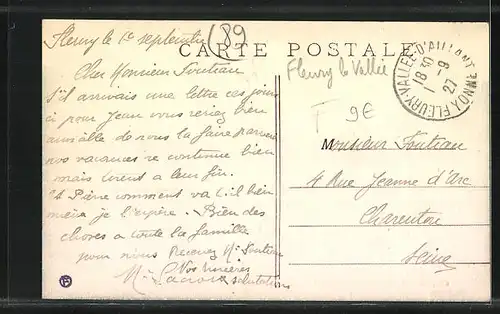 Fleury le 1er septembre
(89
CARTE POSTALE
Cher Monsieur Toutiau
S'il arrivais une lettre ces jours
ci pour Jean vous seriez bien
aimable de nous la faire parvenir
nos vacances se continue bien
mais tirent a leur fin.
et Pierre comment va t.il bien
mieux je l'espère. Bien des
choses a toute la famille
pour nous Recevez Mr Toutiau
Nos sincères
salutations
Fleury la Vallée
T 9€
FLEURY-VALLÉE D'AILLANT YONNE
18 30
1 -9
27
Monsieur Toutiau
4 Rue Jeanne d'Arc
Charenton
Seine